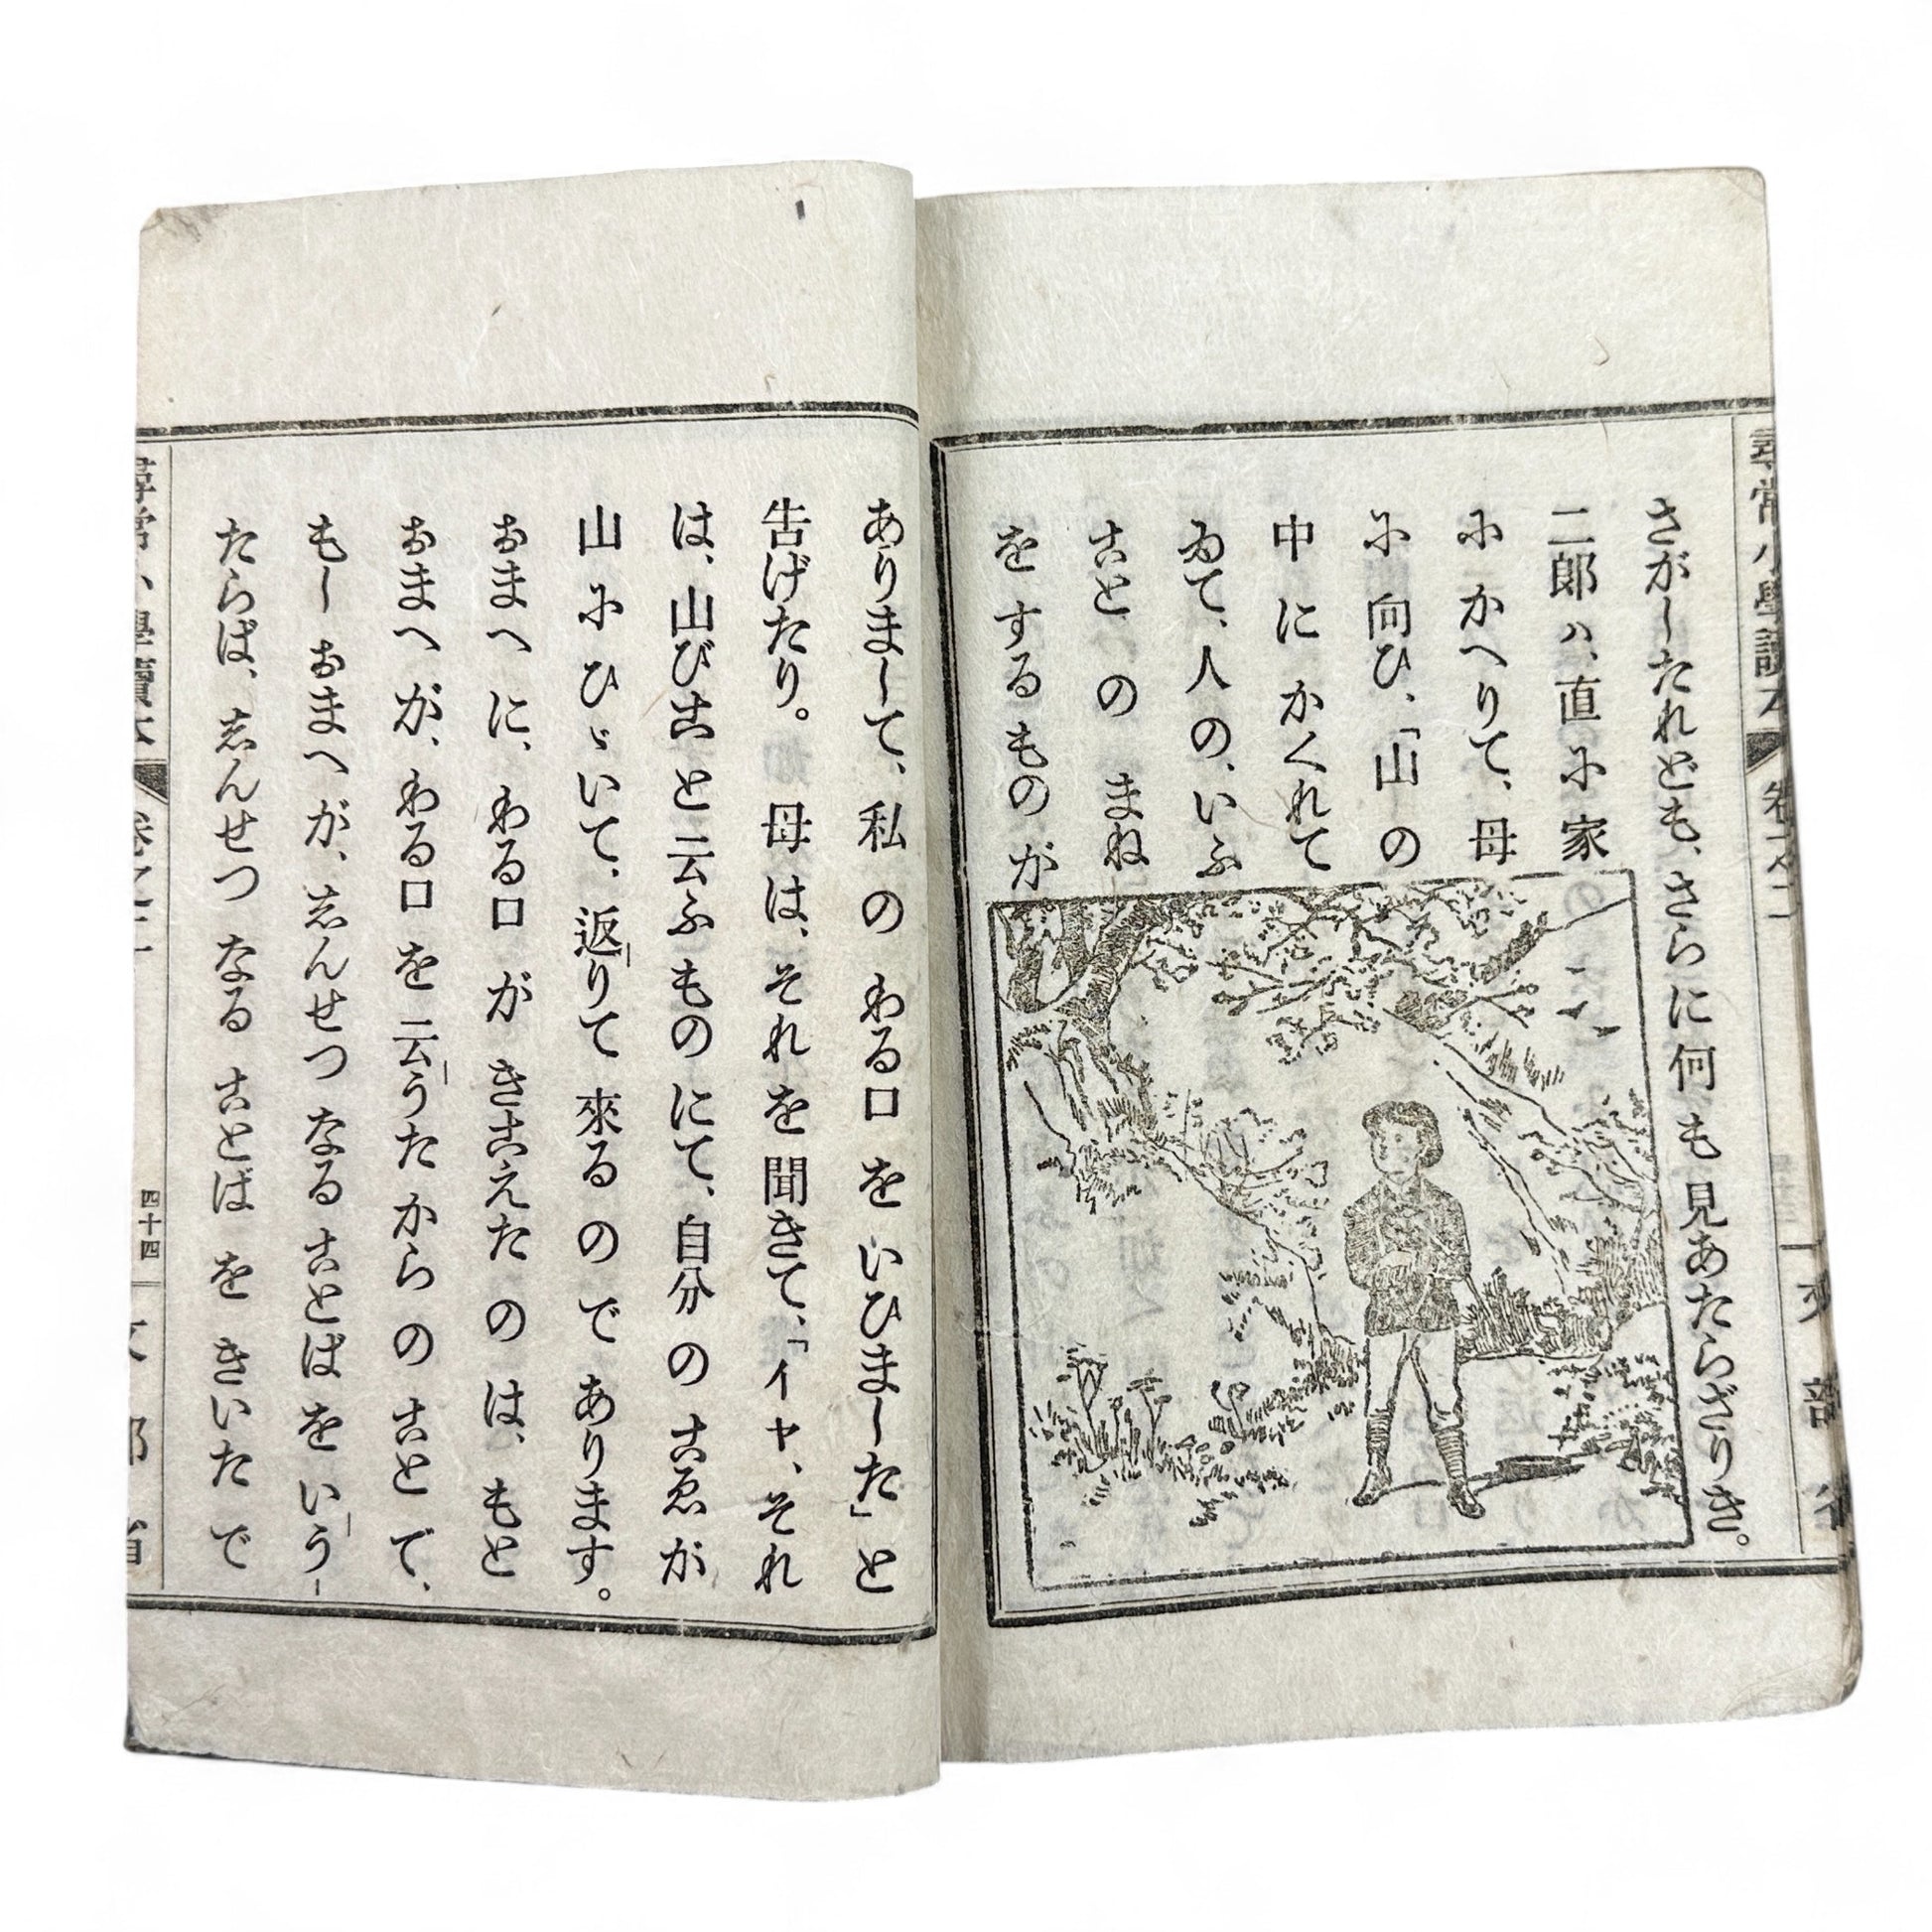 尋常小學讀本
卷之二
文部省
さがしたれども、さらに何も見あたらざりき。
二郎ハ、直に家
にかへりて、母
に向ひ、「山の
中にかくれて
ゐて、人の、いふ
ことのまね
をするものが
ありまして、私のわる口をいひました」と
告げたり。母は、それを聞きて、「イヤ、それ
は、山びこと云ふものにて、自分のこゑが
山にひゞいて、返りて來るのであります。
おまへに、わる口がきこえたのは、もと
おまへが、わる口を云うたからのことで、
もしおまへが、志んせつなることばをいう
たらば、志んせつなることばをきいたで
尋常小學讀本
卷之二
四十四
文部省